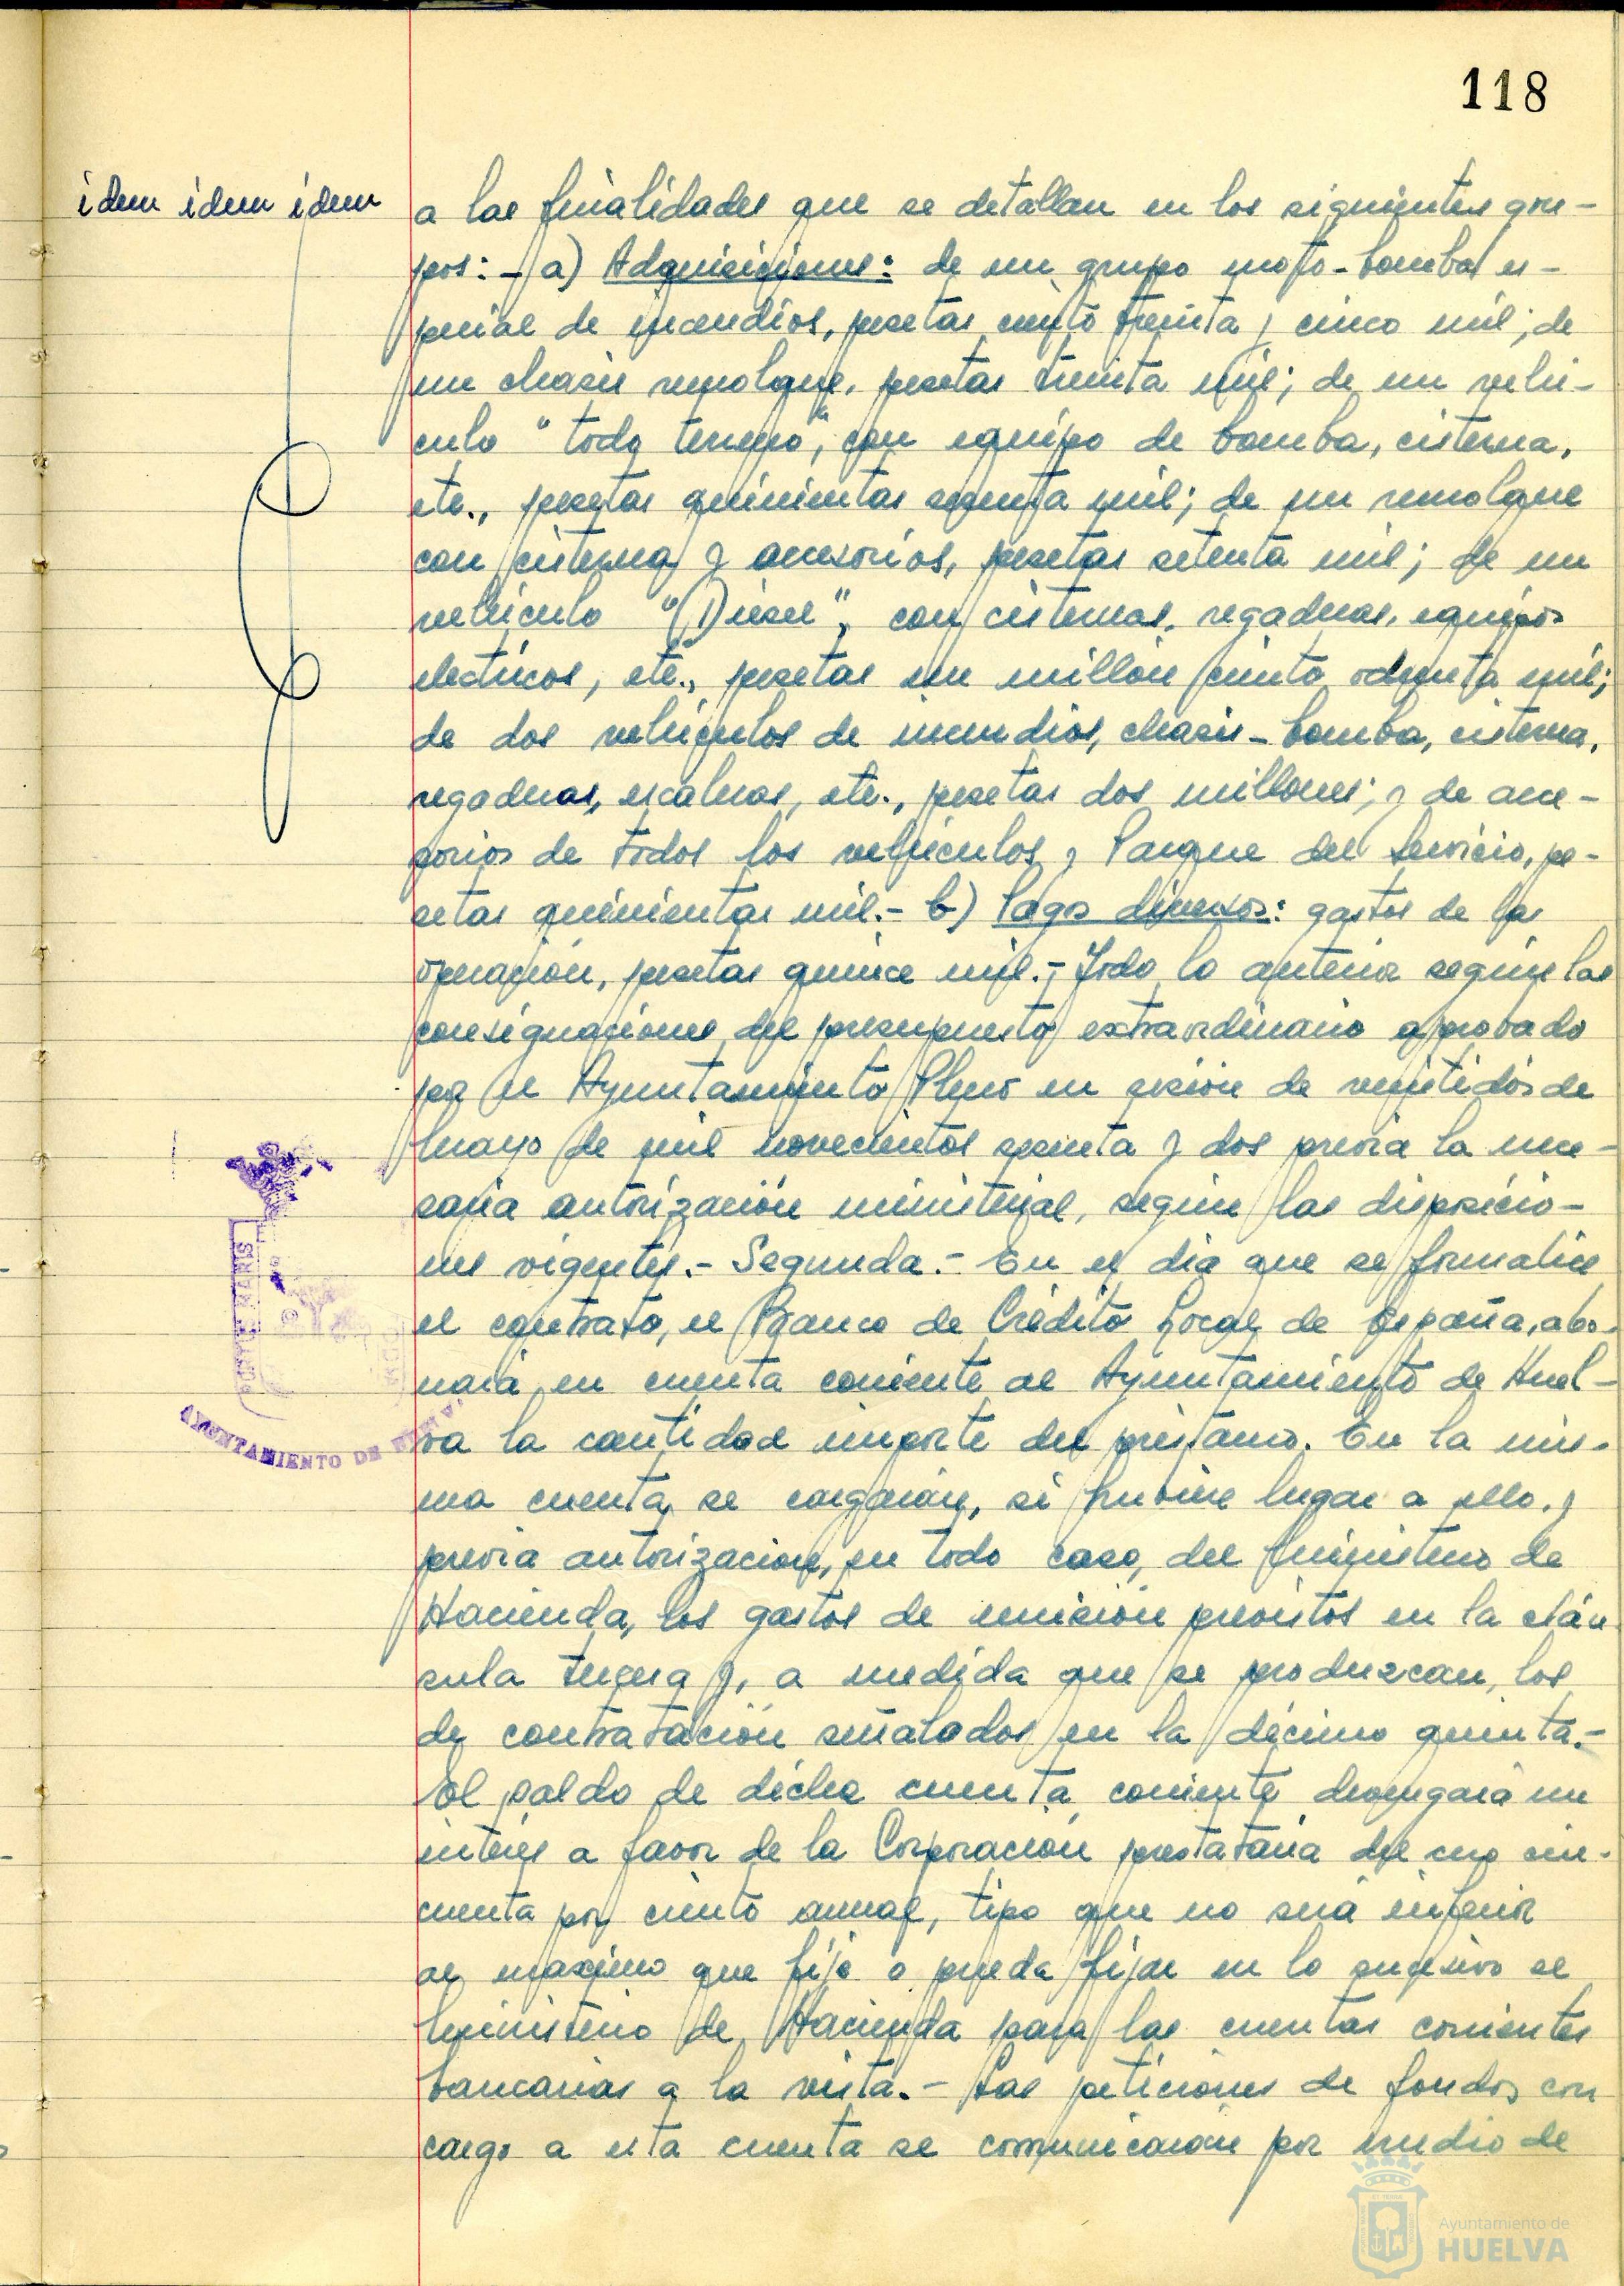 118
idem idem idem
a las finalidades que se detallan en los siguientes gru-
pos: - a) Adquisiciones: de un grupo moto-bomba es-
pecial de incendios, pesetas ciento treinta y cinco mil; de
un chasis remolque, pesetas treinta mil; de un vehi-
culo "todo terreno", con equipo de bomba, cisterna,
etc., pesetas quinientas sesenta mil; de un remolque
con cisterna y accesorios, pesetas setenta mil; de un
vehiculo "Diesel", con cisternas, regaderas, equipos
electricos, etc., pesetas un millón ciento ochenta mil;
de dos vehiculos de incendios, chasis-bomba, cisterna,
regaderas, escaleras, etc., pesetas dos millones; y de acce-
sorios de todos los vehiculos y Parque del Servicio, pe-
setas quinientas mil.- b) Pagos diversos: gastos de la
operación, pesetas quince mil.- Todo lo anterior según las
consignaciones del presupuesto extraordinario aprobado
por el Ayuntamiento Pleno en sesión de veintidós de
Mayo de mil novecientos sesenta y dos previa la nece-
saria autorización ministerial, según las disposicio-
nes vigentes.- Segunda.- En el dia que se formalice
el contrato, el Banco de Crédito Local de España, abo-
nará en cuenta corriente al Ayuntamiento de Huel-
va la cantidad importe del préstamo. En la mis-
ma cuenta se cargarán, si hubiere lugar a ello, y
previa autorización, en todo caso, del Ministerio de
Hacienda, los gastos de emisión previstos en la cláu-
sula tercera y, a medida que se produzcan, los
de contratación señalados en la décimo quinta.-
El saldo de dicha cuenta corriente devengará un
interés a favor de la Corporación prestataria del cero cin-
cuenta por ciento anual, tipo que no será inferior
al maximo que fije o pueda fijar en lo sucesivo el
Ministerio de Hacienda para las cuentas corrientes
bancarias a la vista.- Las peticiones de fondos con
cargo a esta cuenta se comunicarán por medio de
PORTUS MARIS
AYUNTAMIENTO DE
Ayuntamiento de
HUELVA